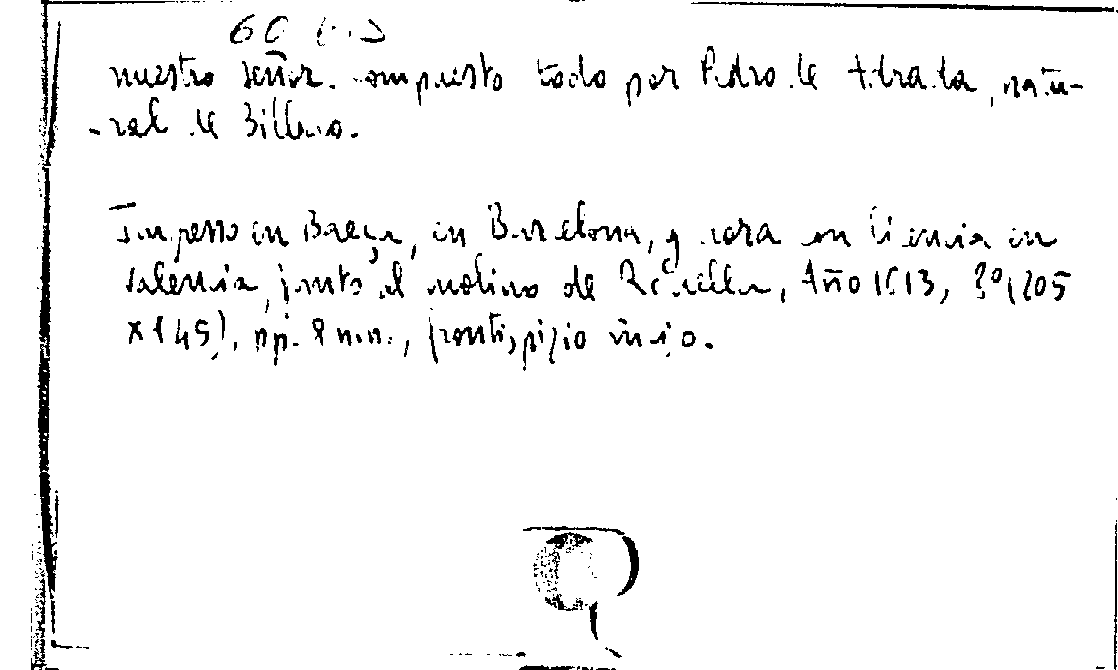 60 bis
nuestro señor. compuesto todo por Pedro de Andrada, natu-
-ral de Billena.
Impreso en Baeça, en Barcelona, y aora con licencia en
Valencia, junto al molino de Rouella, Año 1613, 8º (205
x 145), pp. 8 n.n., frontispizio inciso.